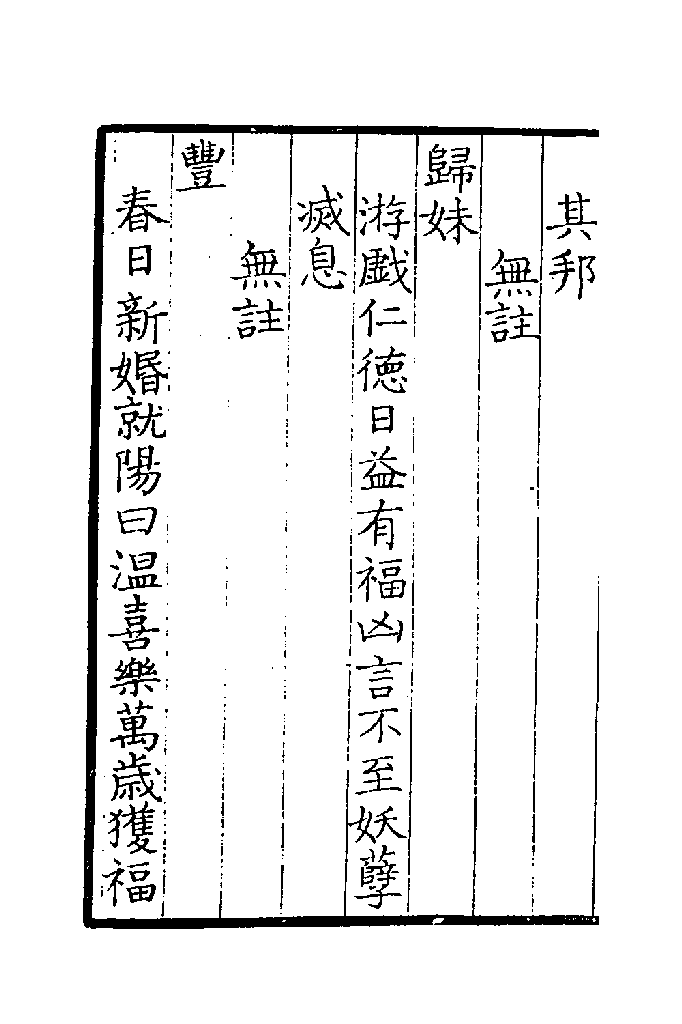 其邦
無註
歸妹
游戱仁徳日益有福凶言不至妖孽
滅息
無註
豐
春日新婚就陽曰温喜樂萬歲獲福